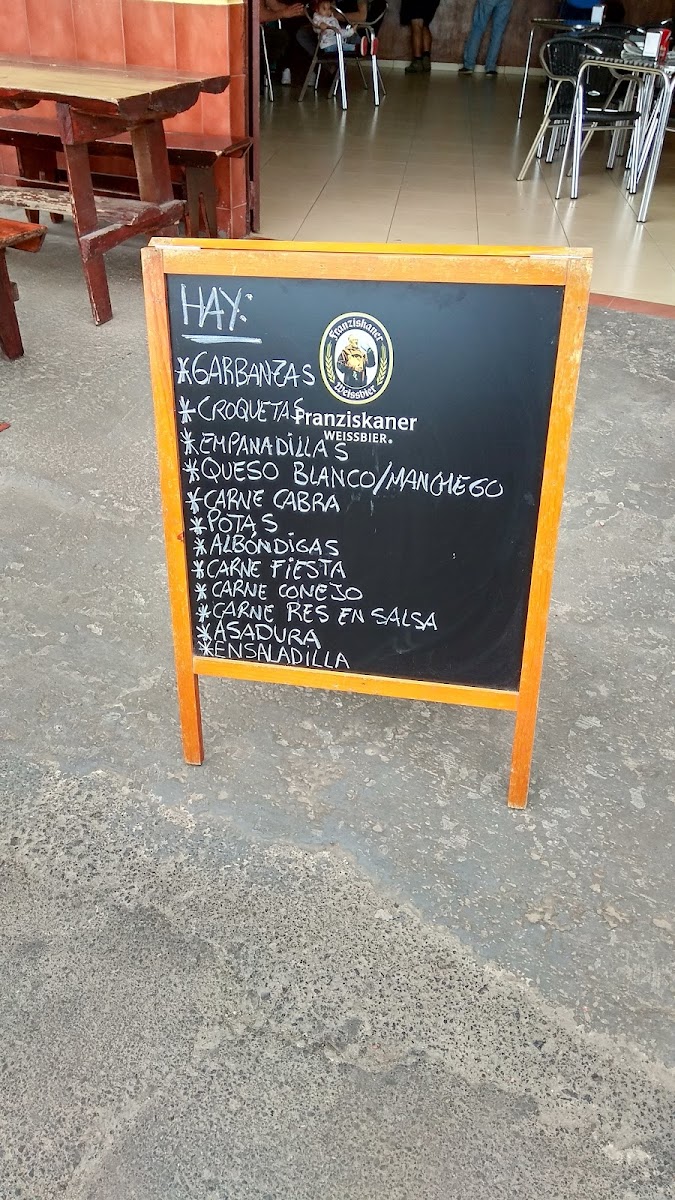 HAY:
Franziskaner
Weissbier
Franziskaner
WEISSBIER.
*GARBANZAS
*CROQUETAS
*EMPANADILLAS
*QUESO BLANCO/MANCHEGO
*CARNE CABRA
*POTAS
*ALBÓNDIGAS
*CARNE FIESTA
*CARNE CONEJO
*CARNE RES EN SALSA
*ASADURA
*ENSALADILLA